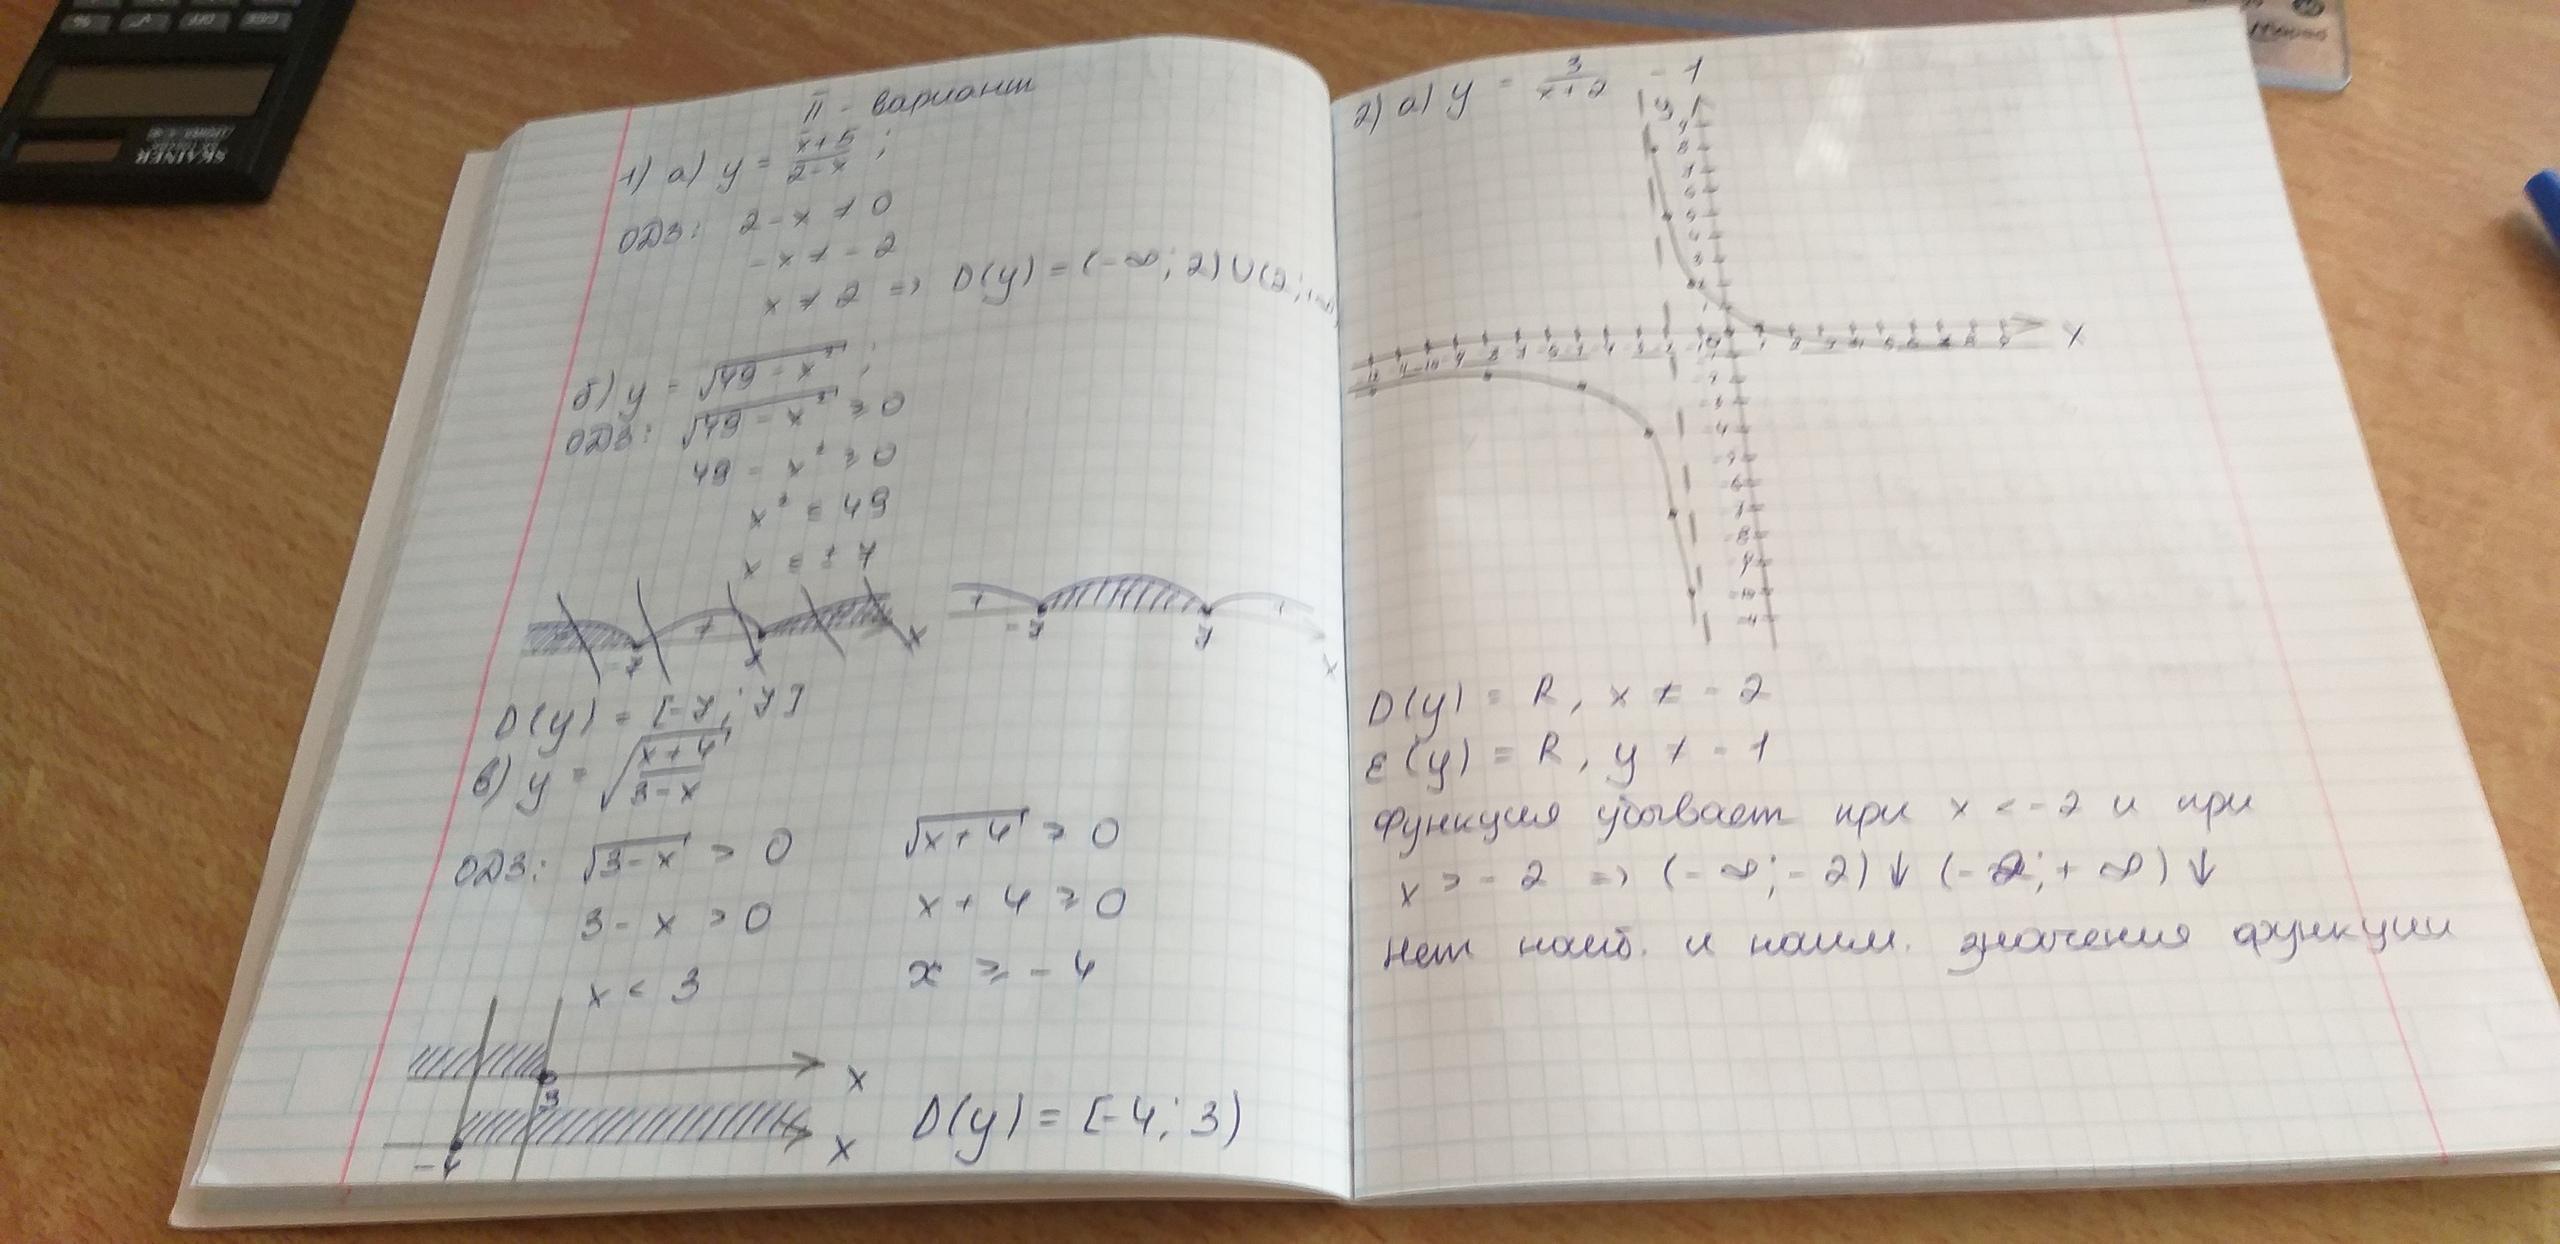 II - вариант
1) а) y = (x+5)/(2-x) ;
ОДЗ: 2 - x ≠ 0
-x ≠ -2
x ≠ 2 => D(y) = (-∞; 2)∪(2;
б) y = √(49 - x²) ;
ОДЗ: √(49 - x²) ≥ 0
49 - x² ≥ 0
x² ≤ 49
x ≤ ±7
-7 x
-7 7 x
D(y) = [-7; 7]
в) y = √((x+4)/(3-x))
ОДЗ: √(3-x) > 0 √(x+4) ≥ 0
3 - x > 0 x + 4 ≥ 0
x < 3 x ≥ -4
3 x
-4 x
D(y) = [-4; 3)
2) а) y = 3/(x+2) - 1
y
x
D(y) = R, x ≠ -2
E(y) = R, y ≠ -1
Функция убывает при x < -2 и при
x > -2 => (-∞; -2)↓ (-2; +∞)↓
Нет наиб. и наим. значения функции
SKAINER
OFF
%
√